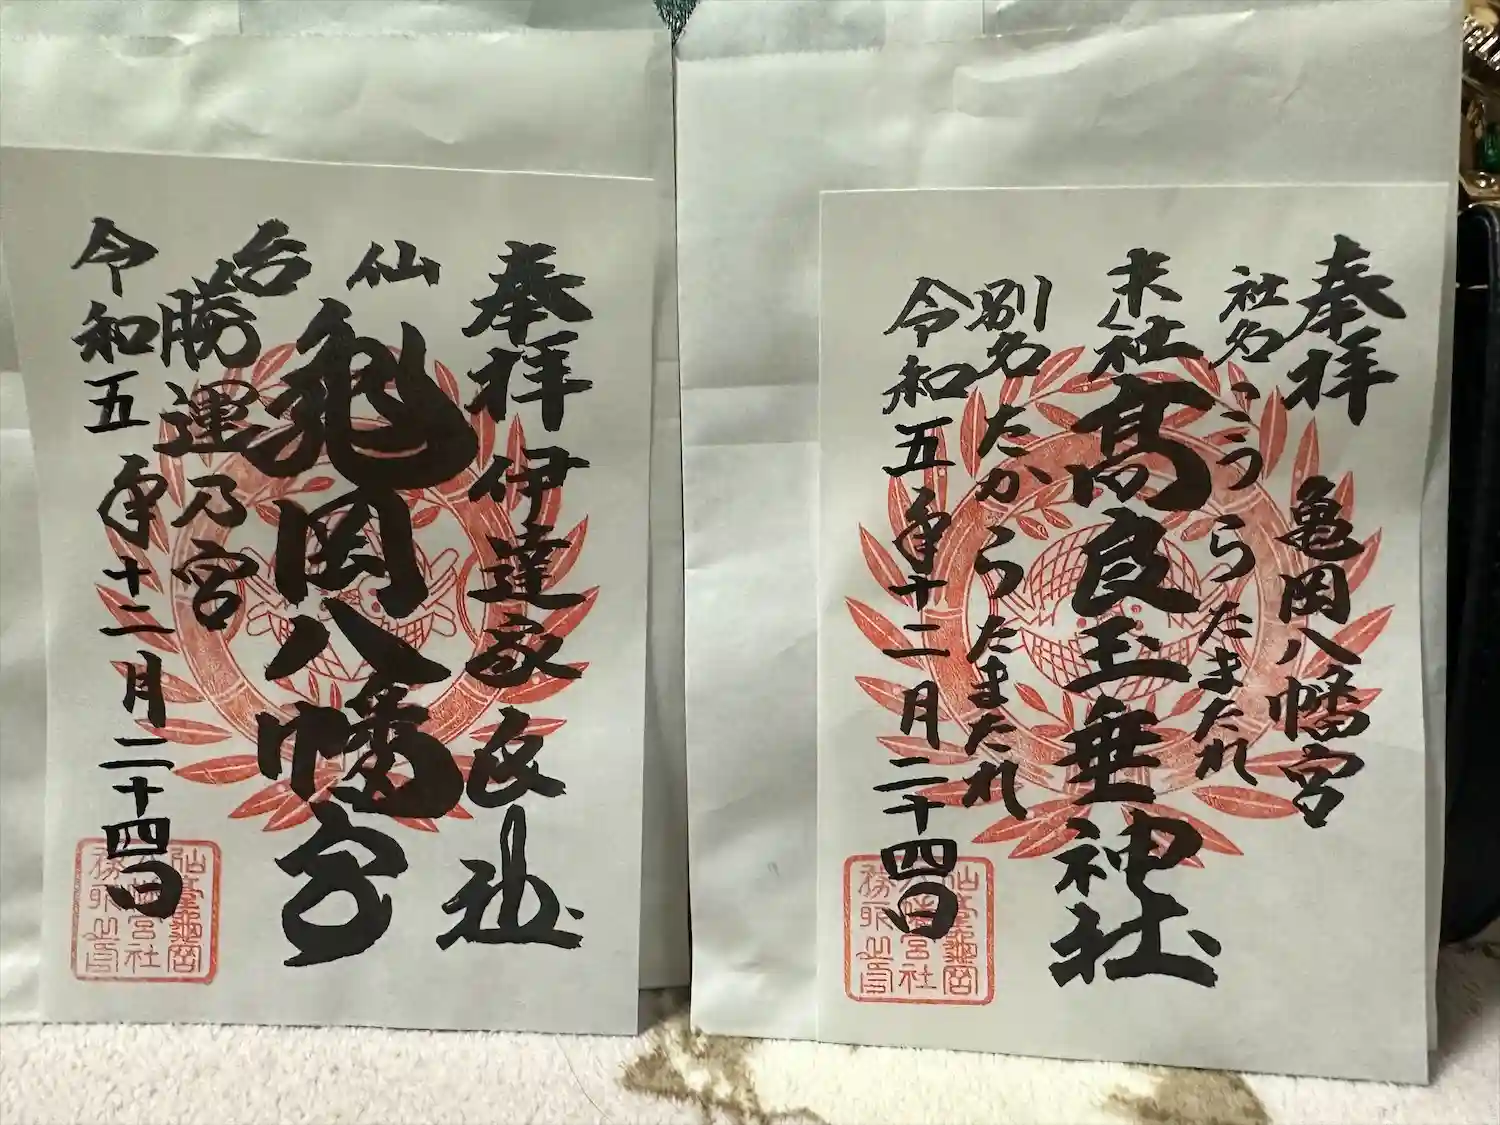 奉拝
伊達家氏社
仙台
亀岡八幡宮
勝運乃宮
令和五年十二月二十四日
奉拝
亀岡八幡宮
社名 こうらたまたれ
末社
高良玉垂神社
別名 たからたまたれ
令和五年十二月二十四日